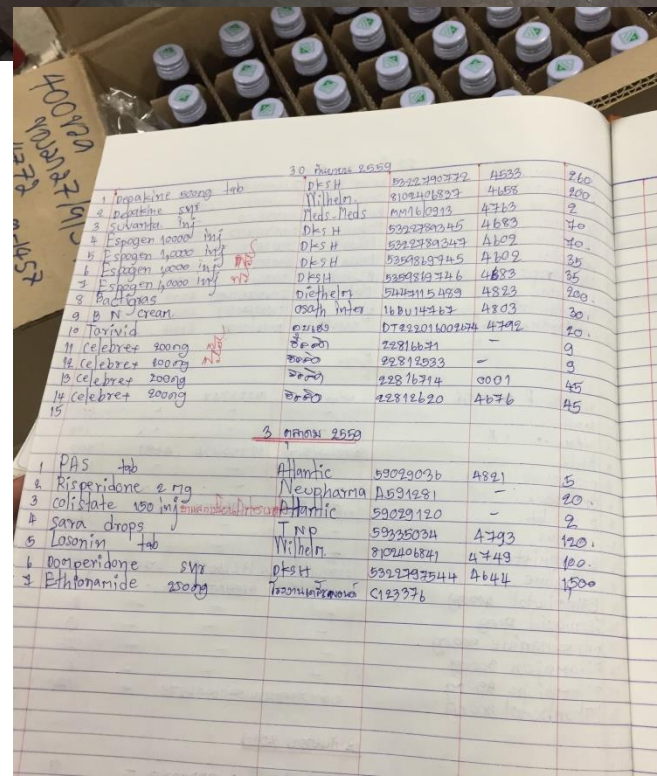 400ขวด
4772
30 กันยายน 2559
1 Depakine 500mg tab DKSH 5322790772 4533 260
2 Depakine syr Wilhelm. 8102406837 4658 200
3 Suvanta inj Meds-Meds MM160913 4763 2
4 Espogen 10000 inj DKSH 5322789345 4683 70
5 Espogen 10000 inj DKSH 5322789347 4602 70.
6 Espogen 4000 inj DKSH 5359869745 4602 35
7 Espogen 4000 inj DKSH 5359869746 4683 35
8 Bactopas Diethelm 5445115489 4823 200.
9 B N cream Osoth inter 16BU14767 4803 30.
10 Tarivid DT222016002674 4792 20.
11 celebrex 200mg 22816671 - 9
12 celebrex 200mg 22812533 - 9
13 celebrex 200mg 22816714 0001 45
14 celebrex 200mg 22812620 4676 45
15
3 ตุลาคม 2559
1 PAS tab Atlantic 59029036 4821 5
2 Risperidone 2 mg Neupharma A591281 - 20.
3 colistate 150 inj Atlantic 59029120 - 2
4 Sara drops TNP 59335034 4793 120.
5 Losonin tab Wilhelm. 8102406841 4749 100.
6 Domperidone syr DKSH 5322797544 4644 1500
7 Ethionamide 250mg C123376